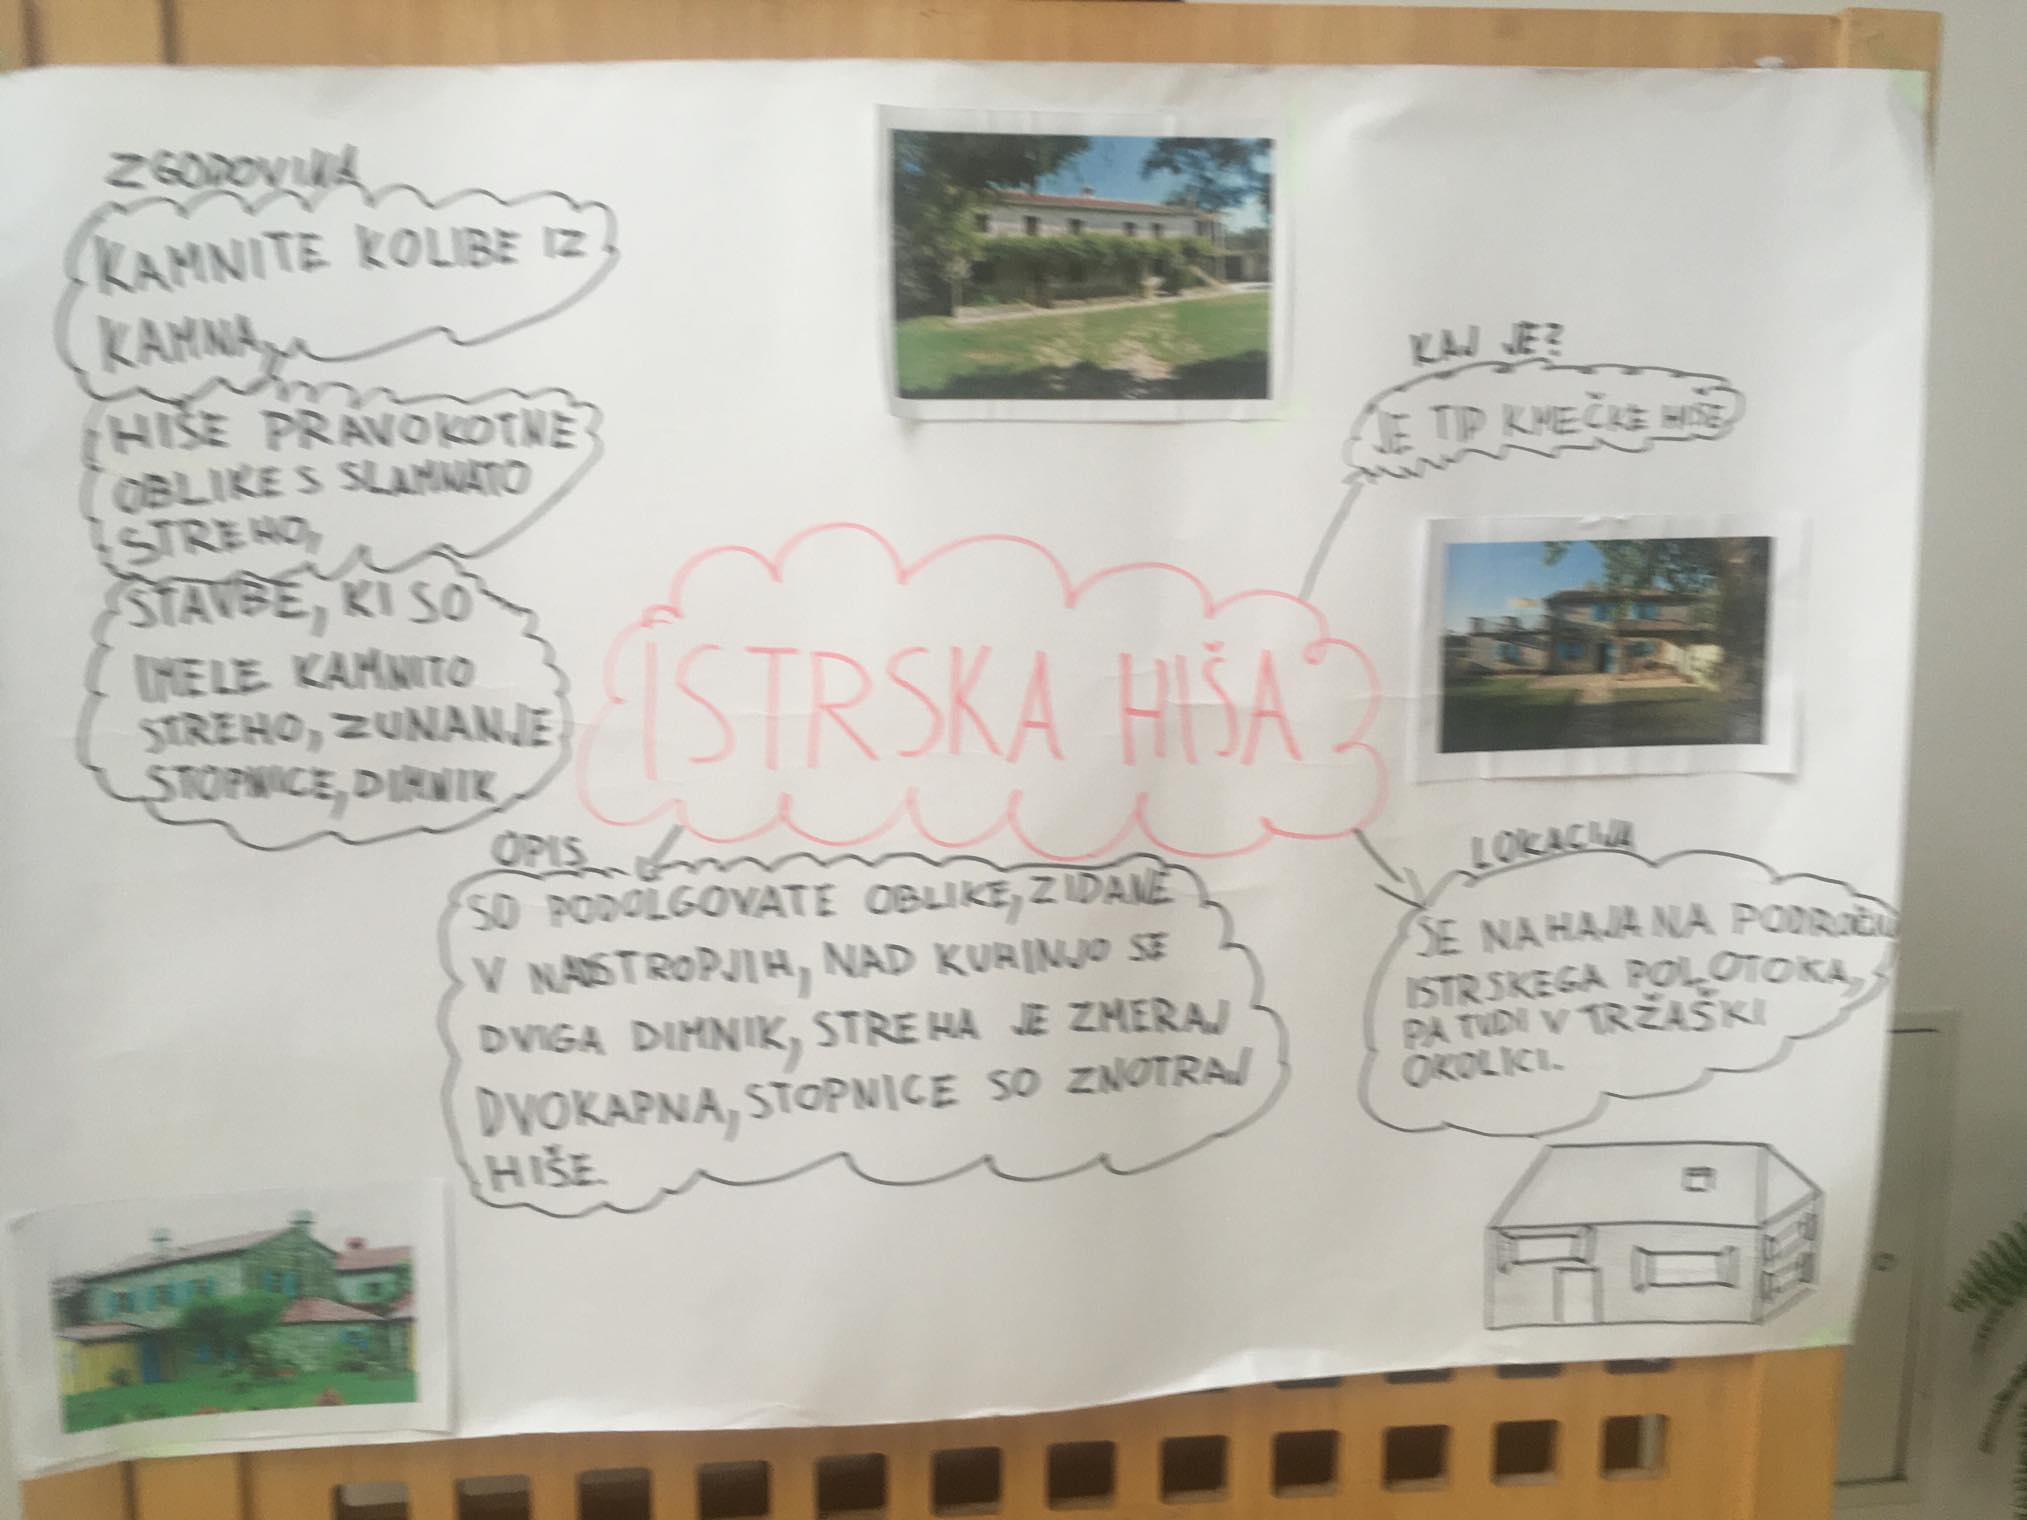 ZGODOVINA
KAMNITE KOLIBE IZ
KAMNA,
HIŠE PRAVOKOTNE
OBLIKE S SLAMNATO
STREHO,
STAVBE, KI SO
IMELE KAMNITO
STREHO, ZUNANJE
STOPNICE, DIMNIK
KAJ JE?
JE TIP KMEČKE HIŠE
ISTRSKA HIŠA
OPIS
SO PODOLGOVATE OBLIKE, ZIDANE
V NADSTROPJIH, NAD KUHINJO SE
DVIGA DIMNIK, STREHA JE ZMERAJ
DVOKAPNA, STOPNICE SO ZNOTRAJ
HIŠE.
LOKACIJA
SE NAHAJA NA PODROČJU
ISTRSKEGA POLOTOKA,
PA TUDI V TRŽAŠKI
OKOLICI.